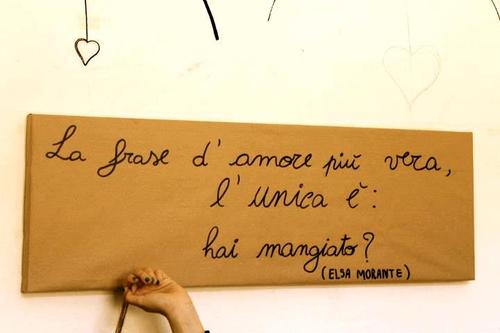 La frase d'amore più vera,
l'unica è:
hai mangiato?
(ELSA MORANTE)